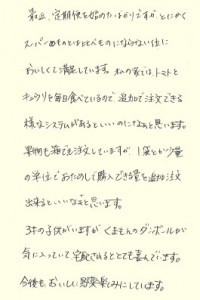 最近、定期便を始めたばかりですが とにかく
スーパーのものとは比べものにならない位に
おいしくて満足しています。私の家ではトマトと
キュウリを毎日食べているので 追加で注文できる
様なシステムがあるといいのになぁと思います。
単品も箱でも注文していますが 1袋とか少量
の単位でおためしで購入できる量を追加注文
出来るといいなぁと思います。
3才の子供がいますが くまもんのダンボールが
気に入っていて 宅配されるととても喜んでいます。
今後も、おいしい野菜楽しみにしています。